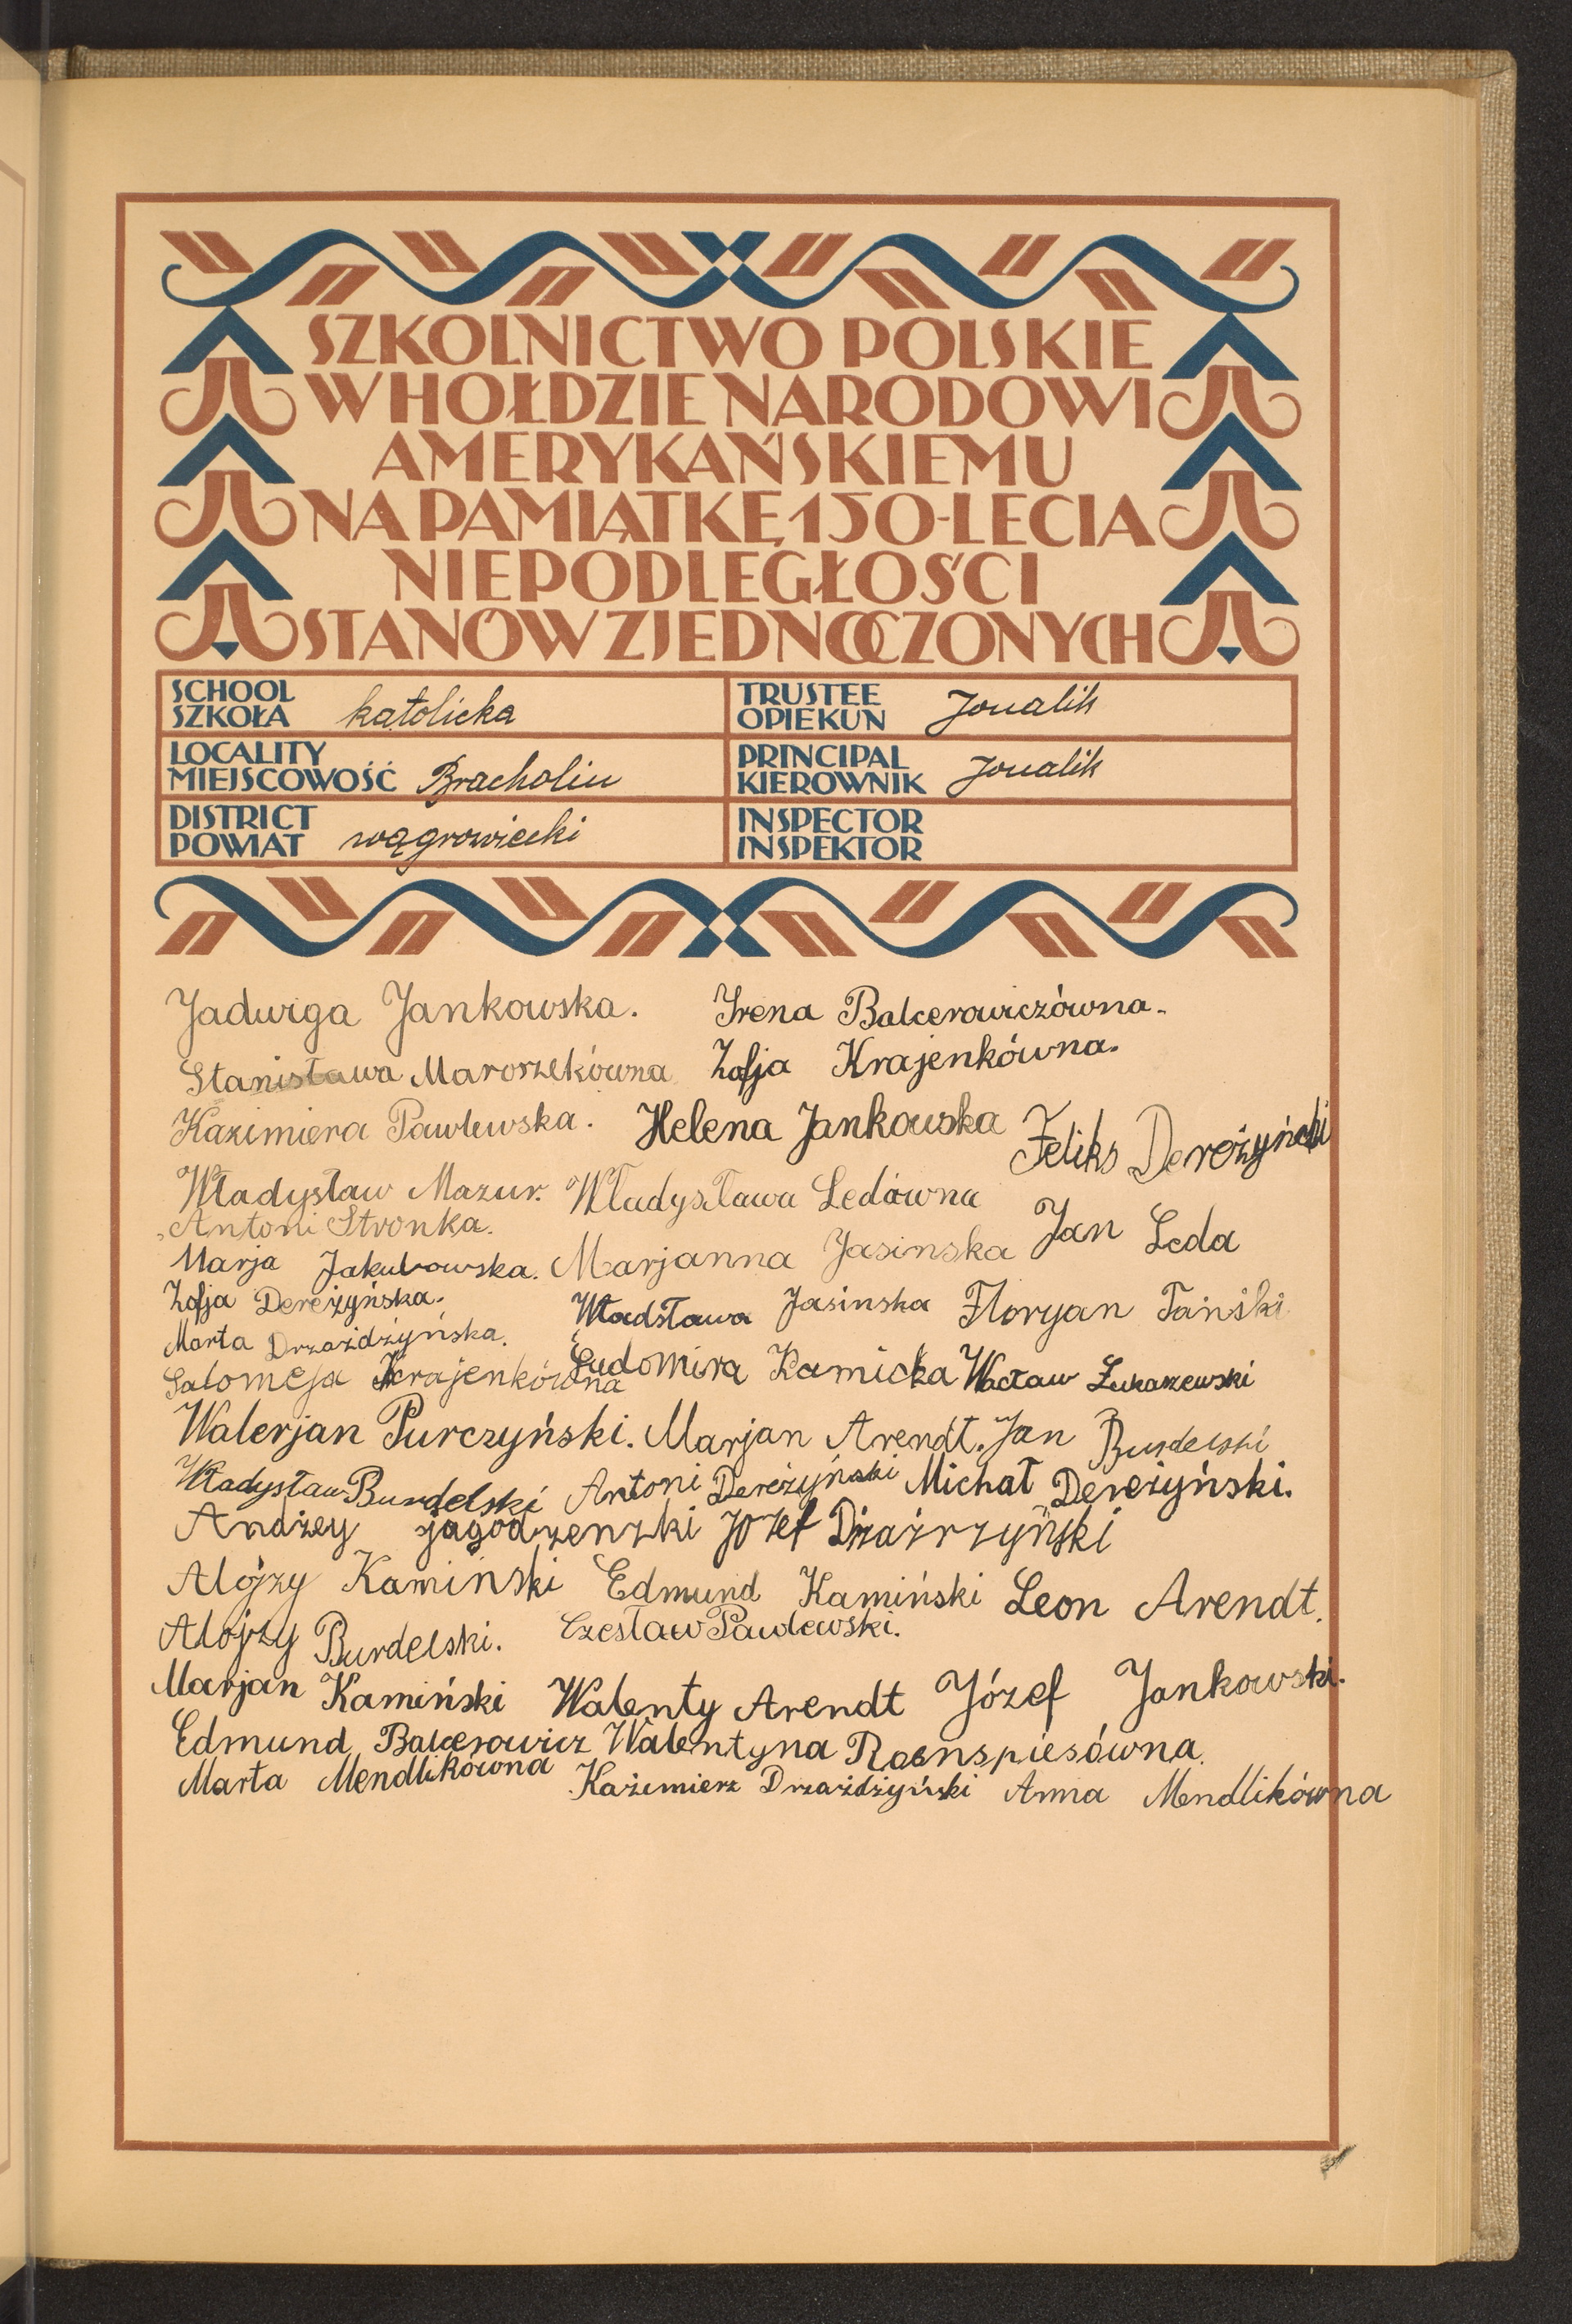 SZKOLNICTWO POLSKIE
W HOŁDZIE NARODOWI
AMERYKAŃSKIEMU
NA PAMIĄTKĘ 150-LECIA
NIEPODLEGŁOŚCI
STANÓW ZJEDNOCZONYCH
SCHOOL
SZKOŁA katolicka
TRUSTEE
OPIEKUN Joualik
LOCALITY
MIEJSCOWOŚĆ Bracholin
PRINCIPAL
KIEROWNIK Joualik
DISTRICT
POWIAT wągrowiecki
INSPECTOR
INSPEKTOR
Jadwiga Jankowska. Irena Balcerowiczówna.
Stanisława Marorzekówna Zofja Krajenkówna.
Kazimiera Pawlewska. Helena Jankowska Feliks Dereżyński
Władysław Mazur. Władysława Ledówna
Antoni Stronka. Jan Leda
Marja Jakubowska. Marjanna Jasinska
Zofja Dereżyńska. Władsława Jasinska Floryan Tański
Marta Drzażdżyńska.
Salomeja Krajenkówna Ludomira Kamicka Wacław Łukaszewski
Walerjan Purczyński. Marjan Arendt. Jan Burdelski
Władysław Burdelski Antoni Dereżyński Michał Dereżyński.
Andżey jagodzenzki Jozef Drażrzyński
Alojzy Kamiński Edmund Kamiński Leon Arendt.
Alojzy Burdelski. Czesław Pawlewski.
Marjan Kamiński Walenty Arendt Józef Jankowski.
Edmund Balcerowicz Walentyna Rosnspiesówna.
Marta Mendlikówna Każimierz Drzażdżyński Anna Mendlikówna